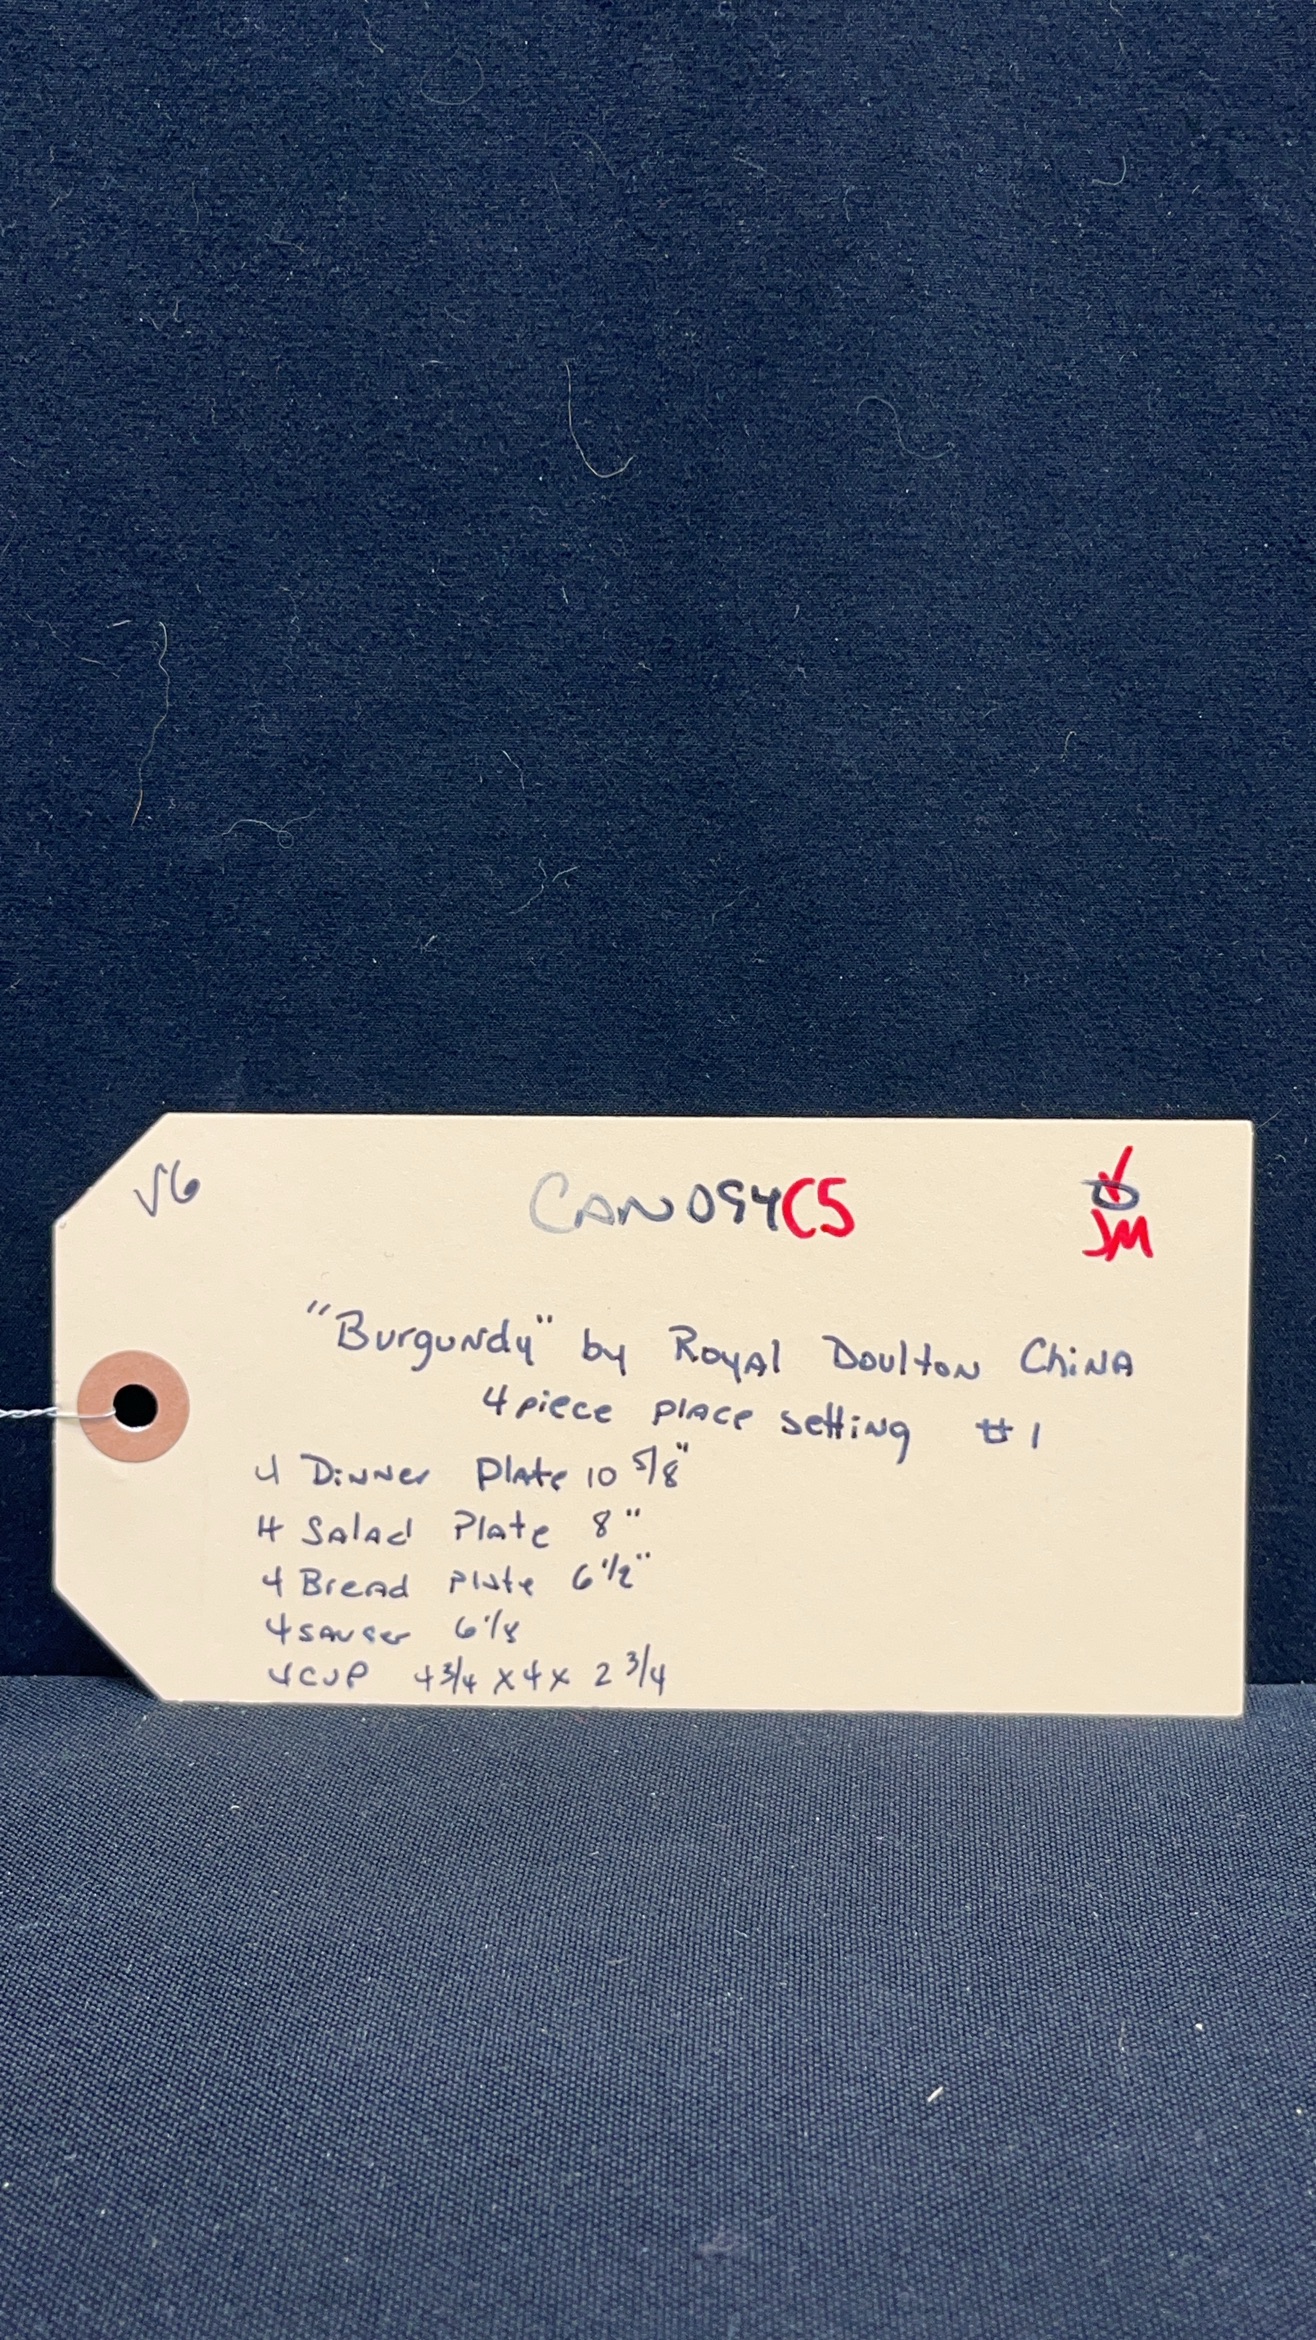 V6
CAN094C5
JM
"Burgundy" by Royal Doulton China
4 piece place setting #1
4 Dinner Plate 10 5/8"
4 Salad Plate 8"
4 Bread Plate 6 1/2"
4 sauser 6 1/8
4 cup 4 3/4 x 4 x 2 3/4